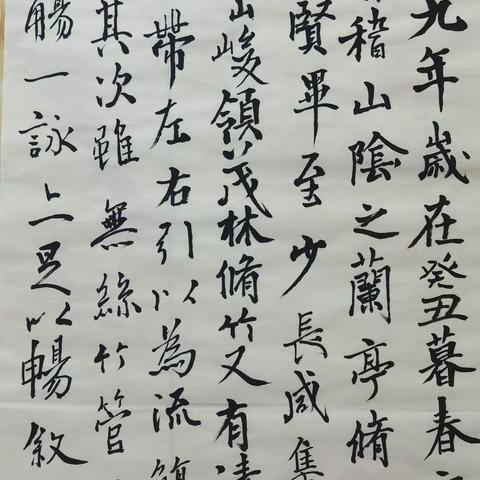 九年歲在癸丑暮春
稽山陰之蘭亭脩
賢畢至少長咸集
山峻領茂林脩竹又有清
帶左右引以為流觴
其次雖無絲竹管
觴一詠亦足以暢敘